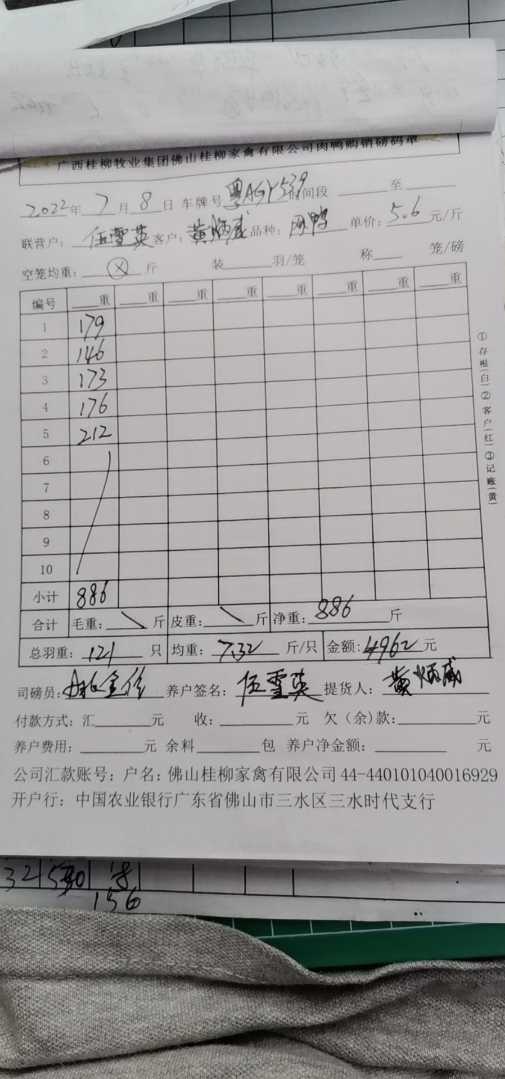 广西桂柳牧业集团佛山桂柳家禽有限公司肉鸭购销磅码单
2022年 7 月 8 日 车牌号 粤AGY539 时间段 至
联营户: 伍雪英 客户: 黄炳威 品种: 肉鸭 单价: 5.6 元/斤
空笼均重: 斤 装 羽/笼 称 笼/磅
编号 重 重 重 重 重 重 重 重
1 179
2 146
3 173
4 176
5 212
6
7
8
9
10
小计 886
合计 毛重: 斤 皮重: 斤 净重: 886 斤
总羽重: 121 只 均重: 7.32 斤/只 金额: 4962 元
司磅员: 养户签名: 伍雪英 提货人: 黄炳威
付款方式: 汇 元 收: 元 欠(余)款: 元
养户费用: 元 余料 包 养户净金额: 元
公司汇款账号: 户名: 佛山桂柳家禽有限公司 44-440101040016929
开户行: 中国农业银行广东省佛山市三水区三水时代支行
①存根(白)②客户(红)③记账(黄)
156